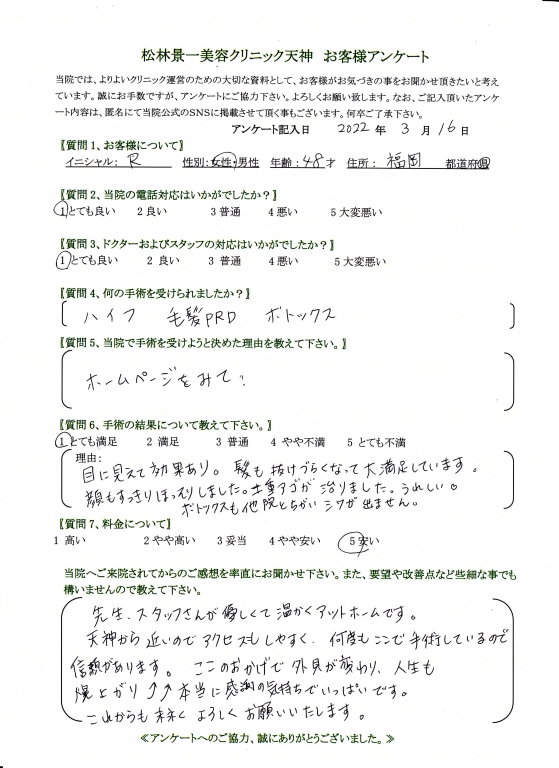 松林景一美容クリニック天神　お客様アンケート
当院では、よりよいクリニック運営のための大切な資料として、お客様がお気づきの事をお聞かせ頂きたいと考え
ています。誠にお手数ですが、アンケートにご協力下さい。よろしくお願い致します。なお、ご記入頂いたアンケ
ート内容は、匿名にて当院公式のSNSに掲載させて頂く事もございます。何卒ご了承下さい。
アンケート記入日　2022 年　3 月 16 日
〖質問 1、お客様について〗
イニシャル： R　性別：女性・男性　年齢：48才　住所：福岡　都道府県
〖質問 2、当院の電話対応はいかがでしたか？〗
1 とても良い　2 良い　3 普通　4 悪い　5 大変悪い
〖質問 3、ドクターおよびスタッフの対応はいかがでしたか？〗
1 とても良い　2 良い　3 普通　4 悪い　5 大変悪い
〖質問 4、何の手術を受けられましたか？〗
ハイフ　毛髪PRD　ボトックス
〖質問 5、当院で手術を受けようと決めた理由を教えて下さい。〗
ホームページをみて。
〖質問 6、手術の結果について教えて下さい。〗
1 とても満足　2 満足　3 普通　4 やや不満　5 とても不満
理由：
目に見えて効果あり。髪も抜けづらくなって大満足しています。
顔もすっきりほっそりしました。二重アゴが治りました。うれしい。
ボトックスも他院とちがいシワが出ません。
〖質問 7、料金について〗
1 高い　2 やや高い　3 妥当　4 やや安い　5 安い
当院へご来院されてからのご感想を率直にお聞かせ下さい。また、要望や改善点など些細な事でも
構いませんので教えて下さい。
先生、スタッフさんが優しくて温かくアットホームです。
天神から近いのでアクセスもしやすく、何度もここで手術しているので
信頼があります。ここのおかげで外見が変わり、人生も
爆上がり↑↑本当に感謝の気持ちでいっぱいです。
これからも末永くよろしくお願いいたします。
≪アンケートへのご協力、誠にありがとうございました。≫